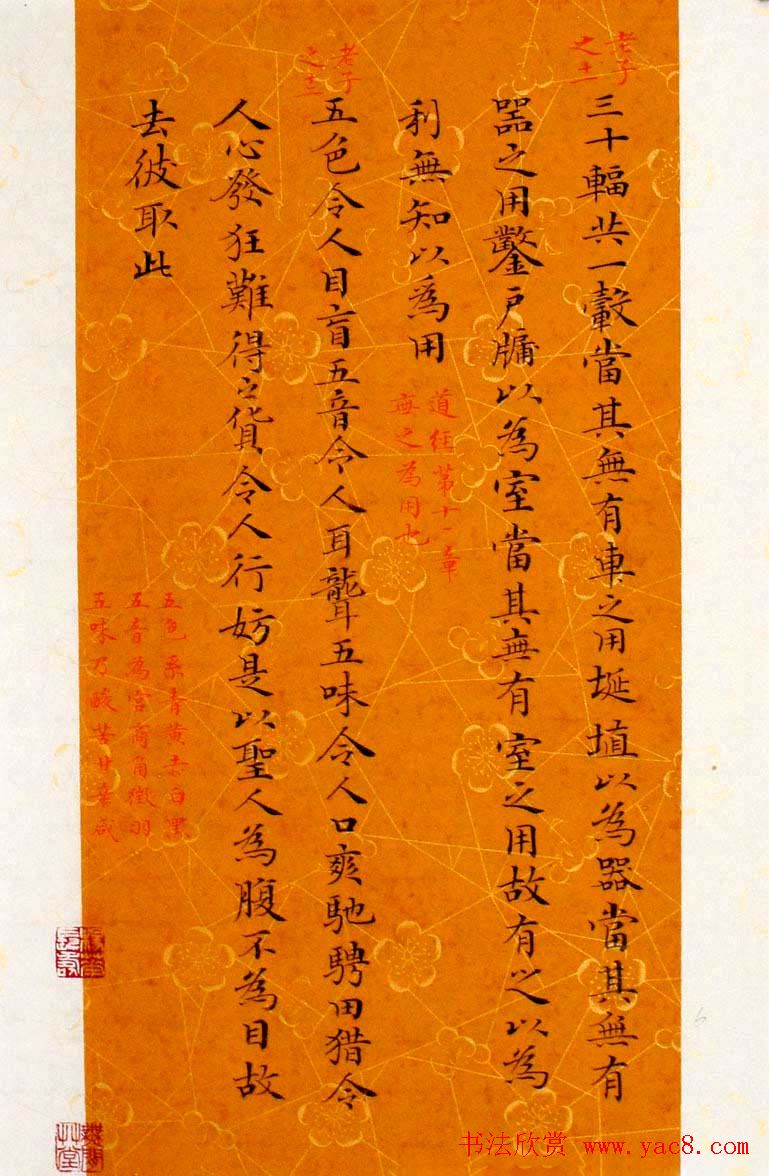 老子
之十一
三十輻共一轂當其無有車之用埏埴以為器當其無有
器之用鑿戶牖以為室當其無有室之用故有之以為
利無知以為用
道经第十一章
無之為用也
老子
之十二
五色令人目盲五音令人耳聾五味令人口爽馳騁田猎令
人心發狂難得之貨令人行妨是以聖人為腹不為目故
去彼取此
五色系青黃赤白黑
五音為宮商角徵羽
五味乃酸苦甘辛咸
书法欣赏 www.yac8.com